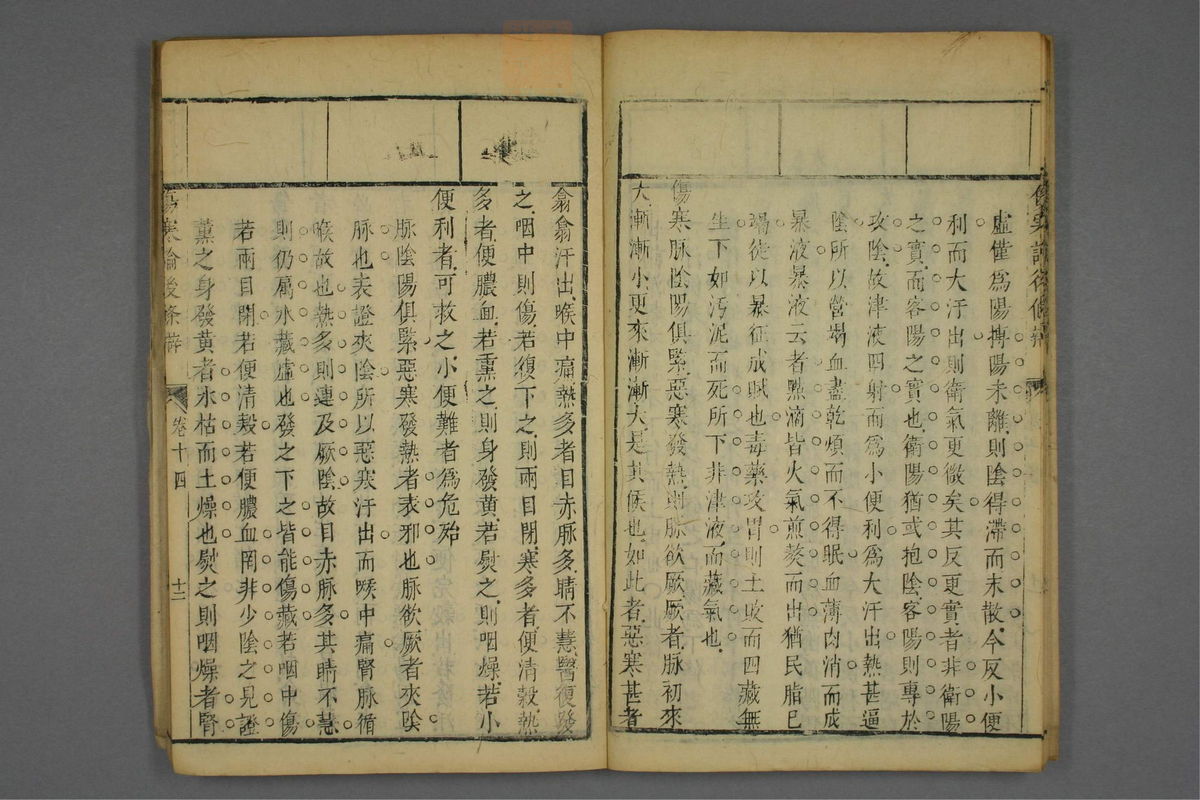 傷寒論後條辨
虛僅爲陽摶陽未離則陰得滯而未散今反小便
利而大汗出則衛氣更微矣其反更實者非衛陽
之實而客陽之實也衛陽猶或抱陰客陽則專於
攻陰故津液四射而爲小便利爲大汗出熱甚逼
陰所以營竭血盡乾煩而不得眠血薄肉消而成
暴液暴液云者點滴皆火氣煎熬而出猶民脂已
竭徒以暴征成賦也毒藥攻胃則土敗而四藏無
生下如汚泥而死所下非津液而藏氣也
傷寒脉陰陽俱緊惡寒發熱則脉欲厥厥者脉初來
大漸漸小更來漸漸大是其候也如此者惡寒甚者
翕翕汗出喉中痛熱多者目赤脉多睛不慧醫復發
之咽中則傷若復下之則兩目閉寒多者便清穀熱
多者便膿血若熏之則身發黄若熨之則咽燥若小
便利者可救之小便難者爲危殆
脉陰陽俱緊惡寒發熱者表邪也脉欲厥者夾陰
脉也表證夾陰所以惡寒汗出而喉中痛腎脉循
喉故也熱多則連及厥陰故目赤脉多其睛不慧
則仍属水藏虛也發之下之皆能傷藏若咽中傷
若兩目閉若便清穀若便膿血罔非少陰之見證
薰之身發黄者水枯而土燥也熨之則咽燥者腎
傷寒論後條辨
卷十四
十二